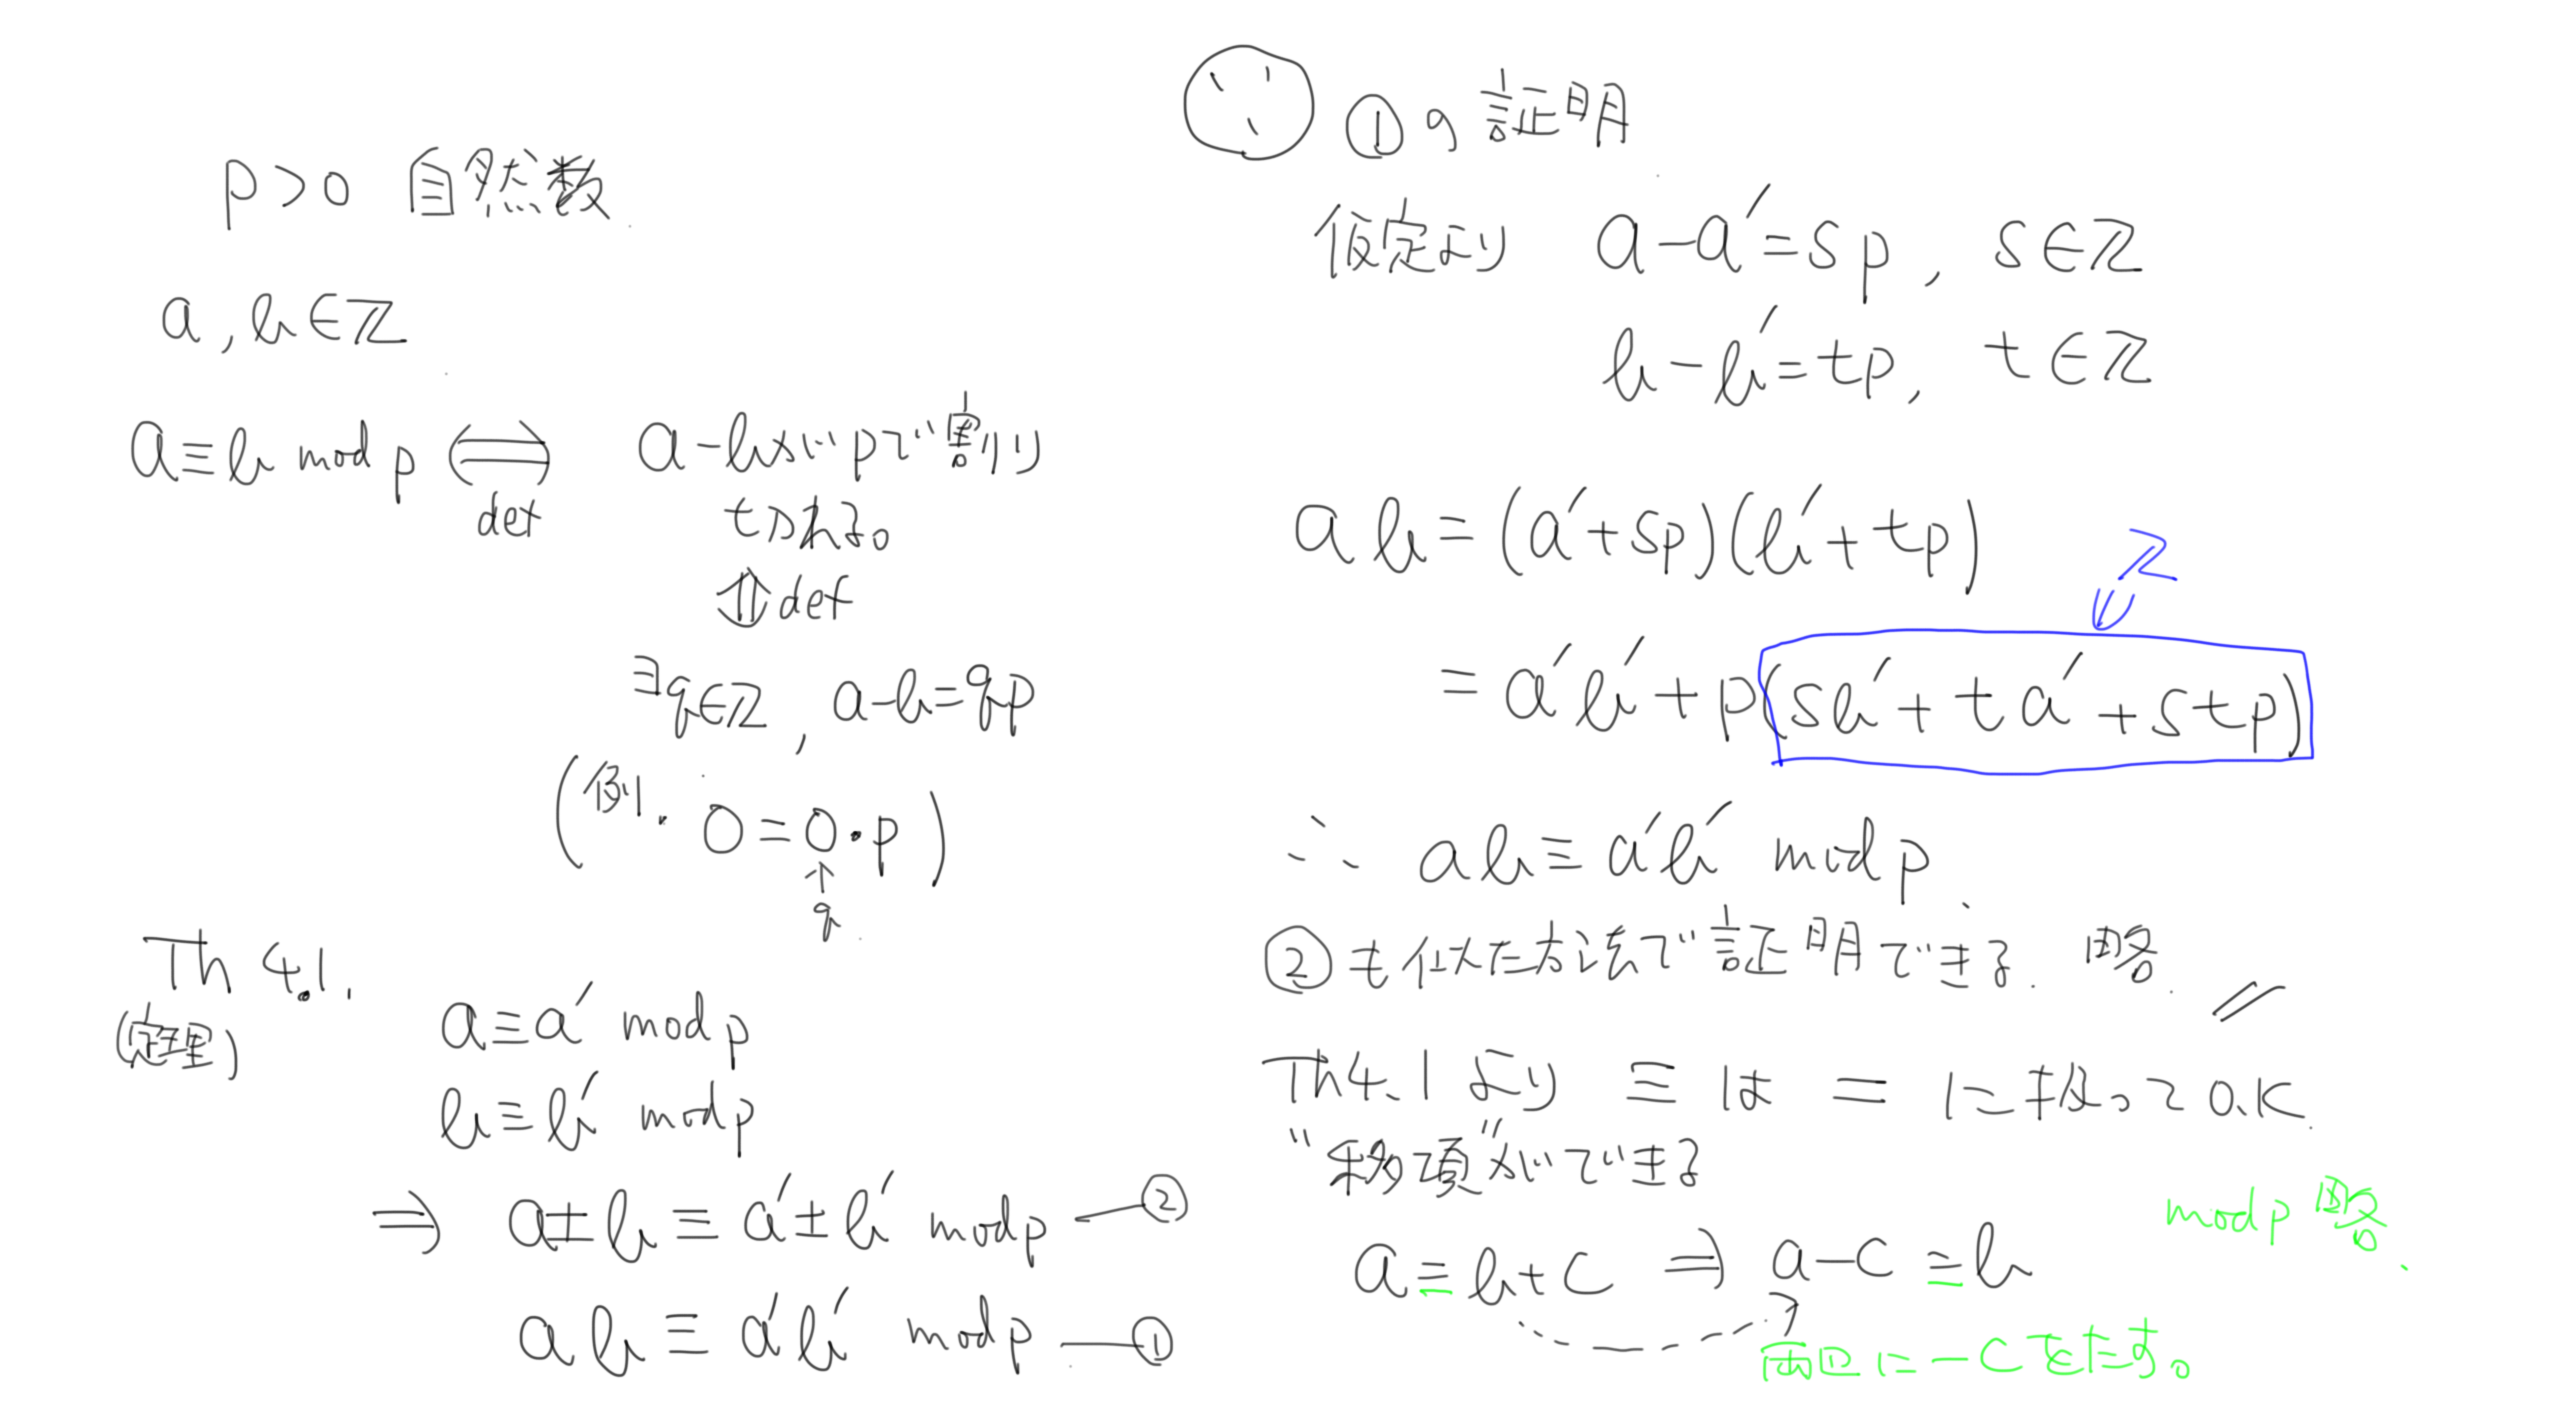 p>0 自然数
a, b∈ℤ
a≡b mod p ⟺ a-bがpで割り
def きれる。
⇕def
∃q∈ℤ, a-b=qp
(例. 0=0・p)
↑
q
Th 4.1.
(定理)
a≡a′ mod p
b≡b′ mod p
⇒ a±b≡a′±b′ mod p ―②
ab≡a′b′ mod p ―①
∵ ①の証明
仮定より a-a′=sp, s∈ℤ
b-b′=tp, t∈ℤ
ab=(a′+sp)(b′+tp)
ℤ
=a′b′+p(sb′+ta′+stp)
∴ ab≡a′b′ mod p.
②も似た方法で証明できる. 略. //
Th4.1より ≡は=に扱ってO.K.
"移項"ができる
mod p略.
a≡b+c ⇒ a-c≡b
両辺に-cをたす。